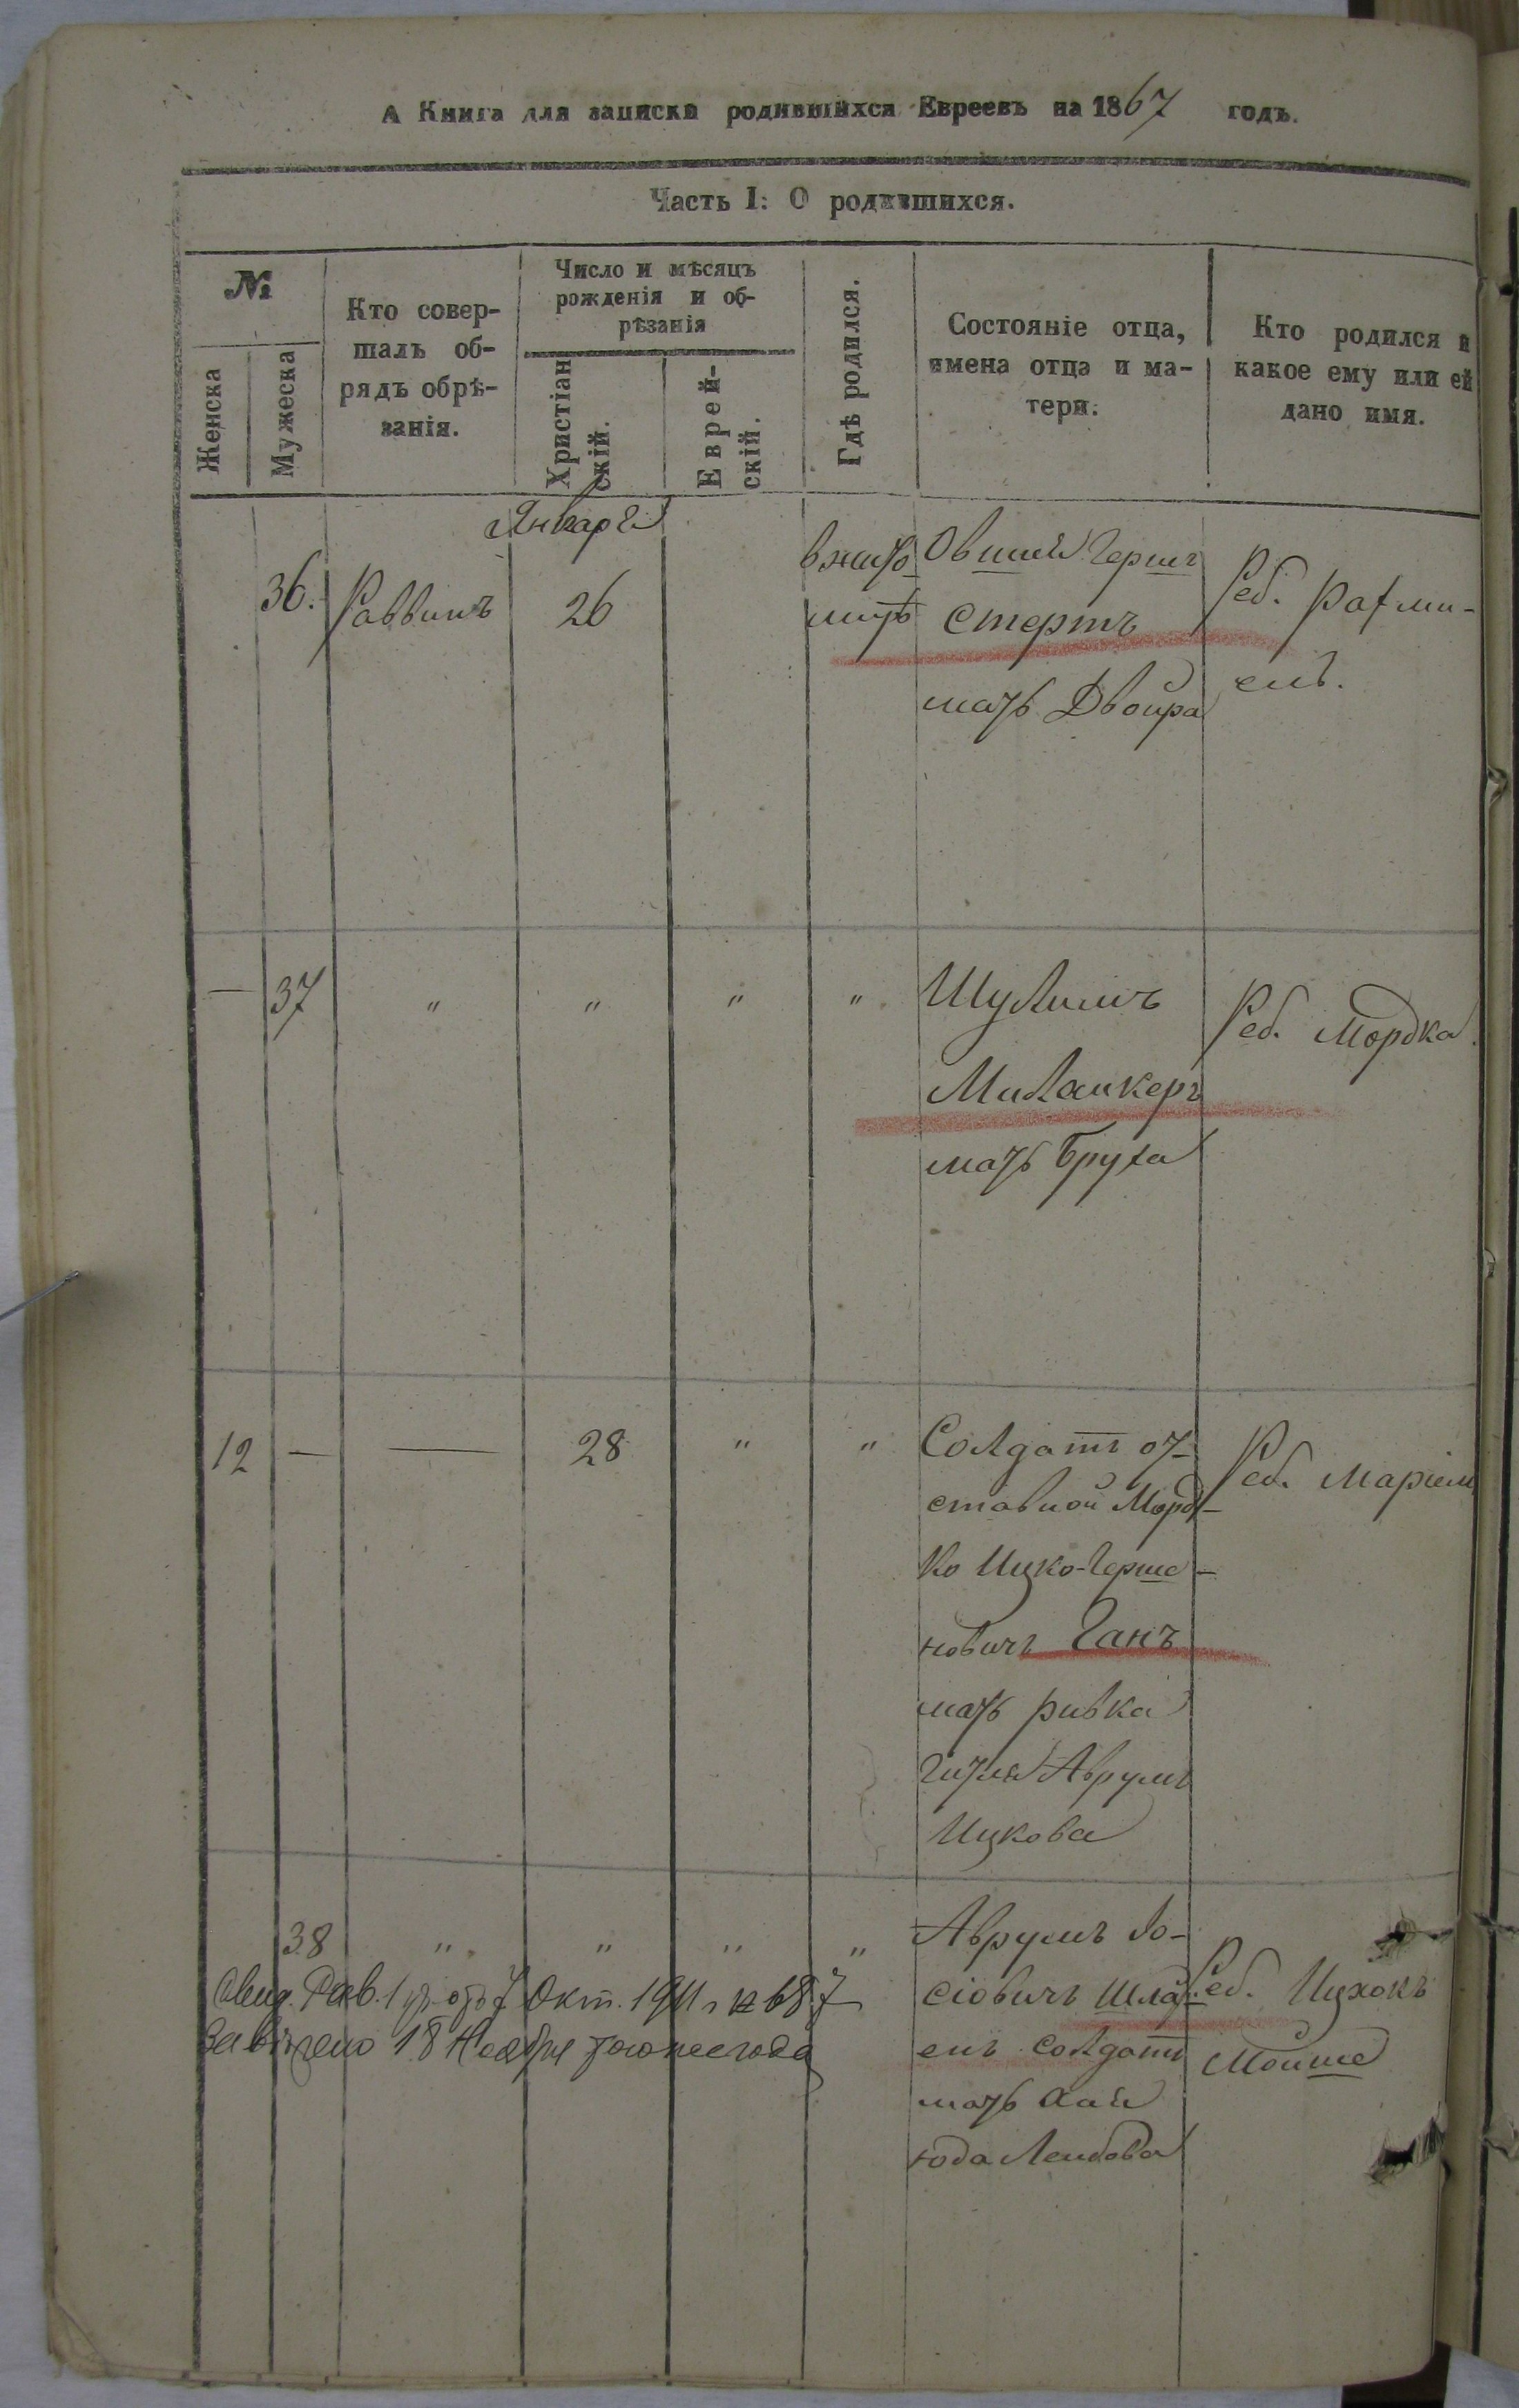 А Книга для записки родившихся Евреевъ на 1867 годъ.
Часть I: О родившихся.
№
Женска
Мужеска
Кто совер-
шалъ об-
рядъ обрѣ-
занія.
Число и мѣсяцъ
рожденія и об-
рѣзанія
Христіан
скій.
Еврей-
скій.
Гдѣ родился.
Состояніе отца,
имена отца и ма-
тери.
Кто родился и
какое ему или ей
дано имя.
Января
36.
Раввинъ
26
в жито
мирѣ
Овшия Герш
Стертъ
мать Двойра
Реб. Рахми-
елъ.
—
37
"
"
"
"
Шулимъ
Миланкеръ
мать Бруха
Реб. Мордка
12
—
—
28
"
"
Солдатъ от-
ставной Морд-
ко Ицко-Герше-
новичъ Ганъ
мать Ривка
Гитля Аврумъ
Ицкова
Реб. Маріем
38
"
"
"
"
Аврумъ Іо-
сіовичъ Шла-
енъ солдатъ
мать Хая
юда Лейбова
Реб. Ицхокъ
Мойше
Рав. отъ 7 Окт. 1911 г № 687
18 Ноября того же года